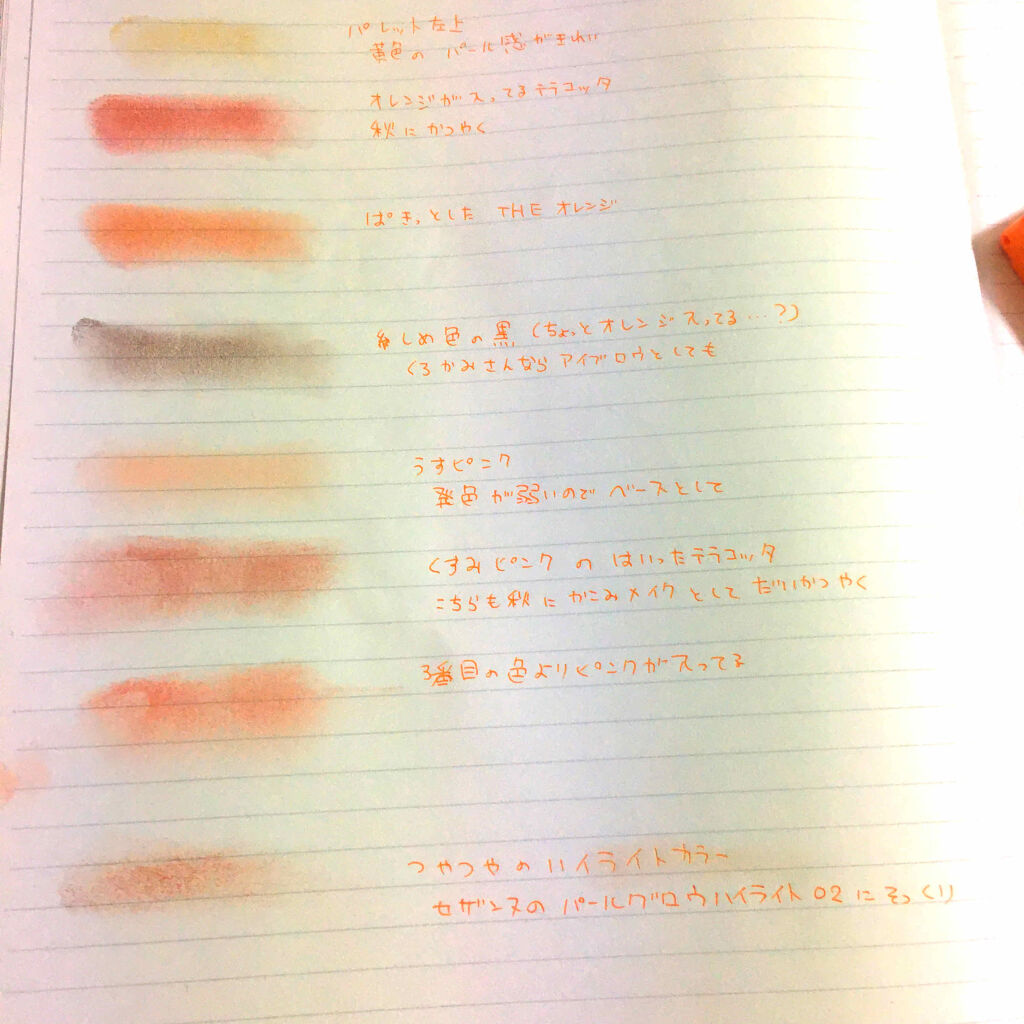 パレット左上
黄色の パール感がきれい
オレンジが入ってるテラコッタ
秋にかつやく
ぱきっとした THE オレンジ
しめ色の黒 (ちょっとオレンジ入ってる…?)
くろかみさんなら アイブロウとしても
うすピンク
発色が弱いので ベースとして
くすみピンク の はいったテラコッタ
こちらも秋に かこみメイク として だいかつやく
3番目の色よりピンクが入ってる
つやつやの ハイライトカラー
セザンヌの パールグロウハイライト 02 に そっくり